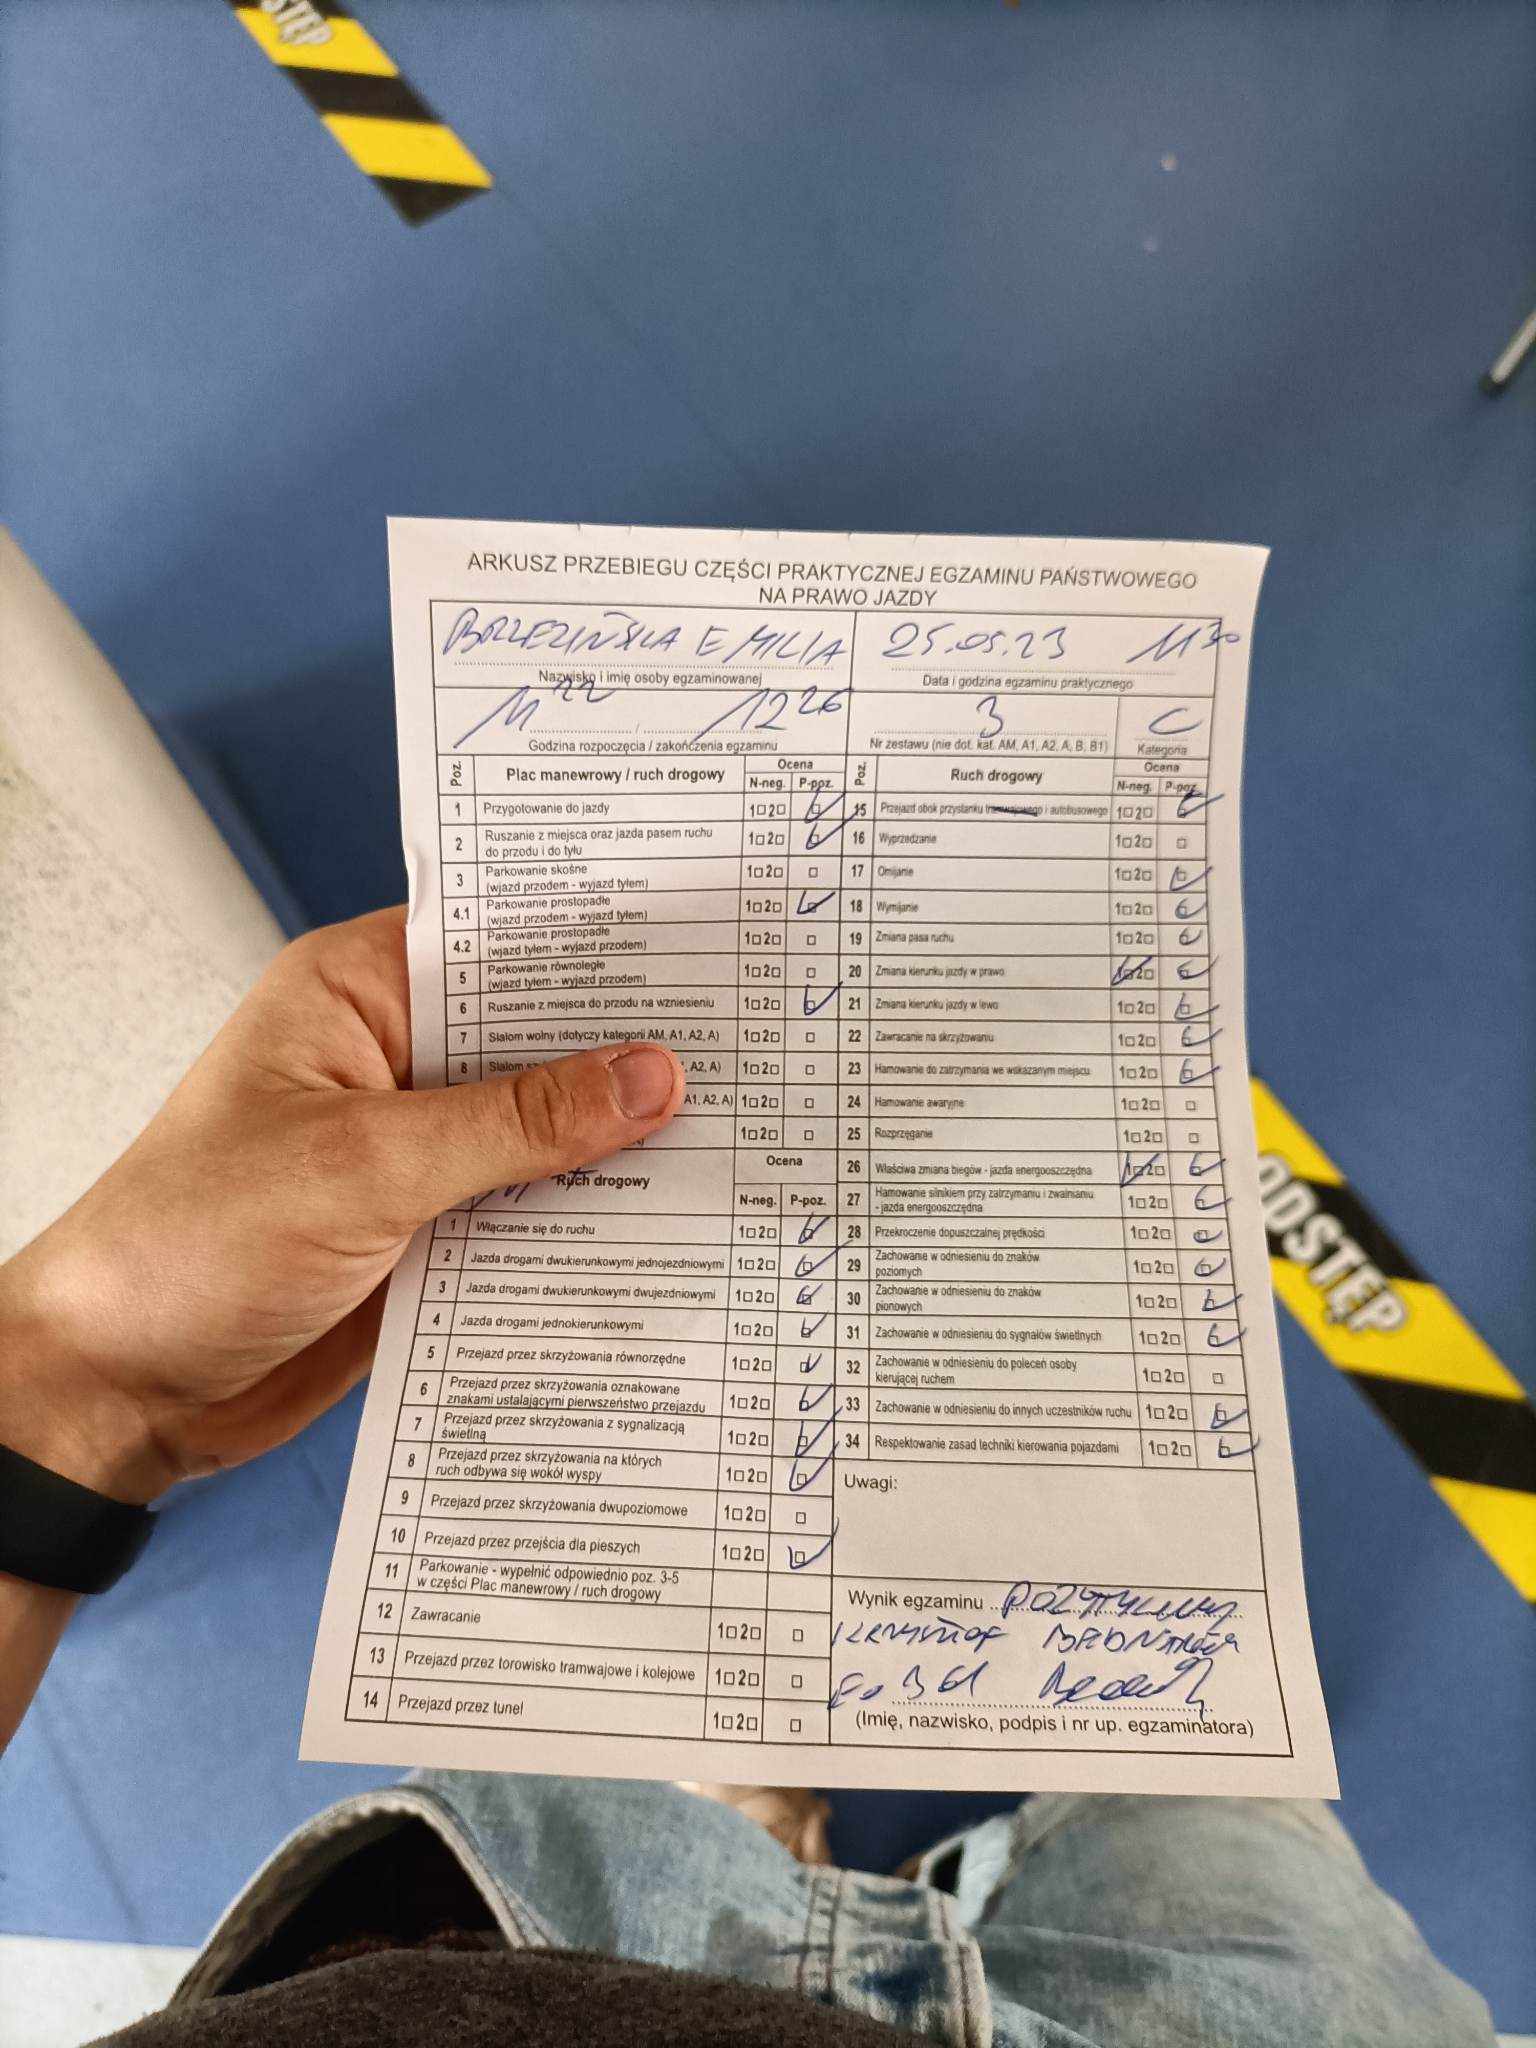 STĘP
ARKUSZ PRZEBIEGU CZĘŚCI PRAKTYCZNEJ EGZAMINU PAŃSTWOWEGO
NA PRAWO JAZDY
BRZEZIŃSKA EMILIA
Nazwisko i imię osoby egzaminowanej
25.05.23 11 30
Data i godzina egzaminu praktycznego
11 22 / 12 26
Godzina rozpoczęcia / zakończenia egzaminu
3
Nr zestawu (nie dot. kat. AM, A1, A2, A, B, B1)
C
Kategoria
Poz. Plac manewrowy / ruch drogowy Ocena
N-neg. P-poz.
1 Przygotowanie do jazdy 1□2□ □
2 Ruszanie z miejsca oraz jazda pasem ruchu
do przodu i do tyłu 1□2□ □
3 Parkowanie skośne
(wjazd przodem - wyjazd tyłem) 1□2□ □
4.1 Parkowanie prostopadłe
(wjazd przodem - wyjazd tyłem) 1□2□ □
4.2 Parkowanie prostopadłe
(wjazd tyłem - wyjazd przodem) 1□2□ □
5 Parkowanie równoległe
(wjazd tyłem - wyjazd przodem) 1□2□ □
6 Ruszanie z miejsca do przodu na wzniesieniu 1□2□ □
7 Slalom wolny (dotyczy kategorii AM, A1, A2, A) 1□2□ □
8 Slalom , A2, A) 1□2□ □
A1, A2, A) 1□2□ □
1□2□ □
Ruch drogowy Ocena
N-neg. P-poz.
1 Włączanie się do ruchu 1□2□ □
2 Jazda drogami dwukierunkowymi jednojezdniowymi 1□2□ □
3 Jazda drogami dwukierunkowymi dwujezdniowymi 1□2□ □
4 Jazda drogami jednokierunkowymi 1□2□ □
5 Przejazd przez skrzyżowania równorzędne 1□2□ □
6 Przejazd przez skrzyżowania oznakowane
znakami ustalającymi pierwszeństwo przejazdu 1□2□ □
7 Przejazd przez skrzyżowania z sygnalizacją
świetlną 1□2□ □
8 Przejazd przez skrzyżowania na których
ruch odbywa się wokół wyspy 1□2□ □
9 Przejazd przez skrzyżowania dwupoziomowe 1□2□ □
10 Przejazd przez przejścia dla pieszych 1□2□ □
11 Parkowanie - wypełnić odpowiednio poz. 3-5
w części Plac manewrowy / ruch drogowy
12 Zawracanie 1□2□ □
13 Przejazd przez torowisko tramwajowe i kolejowe 1□2□ □
14 Przejazd przez tunel 1□2□ □
Poz. Ruch drogowy Ocena
N-neg. P-poz.
15 Przejazd obok przystanku tramwajowego i autobusowego 1□2□ □
16 Wyprzedzanie 1□2□ □
17 Omijanie 1□2□ □
18 Wymijanie 1□2□ □
19 Zmiana pasa ruchu 1□2□ □
20 Zmiana kierunku jazdy w prawo 1□2□ □
21 Zmiana kierunku jazdy w lewo 1□2□ □
22 Zawracanie na skrzyżowaniu 1□2□ □
23 Hamowanie do zatrzymania we wskazanym miejscu 1□2□ □
24 Hamowanie awaryjne 1□2□ □
25 Rozprzęganie 1□2□ □
26 Właściwa zmiana biegów - jazda energooszczędna 1□2□ □
27 Hamowanie silnikiem przy zatrzymaniu i zwalnianiu
- jazda energooszczędna 1□2□ □
28 Przekroczenie dopuszczalnej prędkości 1□2□ □
29 Zachowanie w odniesieniu do znaków
poziomych 1□2□ □
30 Zachowanie w odniesieniu do znaków
pionowych 1□2□ □
31 Zachowanie w odniesieniu do sygnałów świetlnych 1□2□ □
32 Zachowanie w odniesieniu do poleceń osoby
kierującej ruchem 1□2□ □
33 Zachowanie w odniesieniu do innych uczestników ruchu 1□2□ □
34 Respektowanie zasad techniki kierowania pojazdami 1□2□ □
Uwagi:
Wynik egzaminu POZYTYWNY
KRZYSZTOF
(Imię, nazwisko, podpis i nr up. egzaminatora)
ODSTĘP